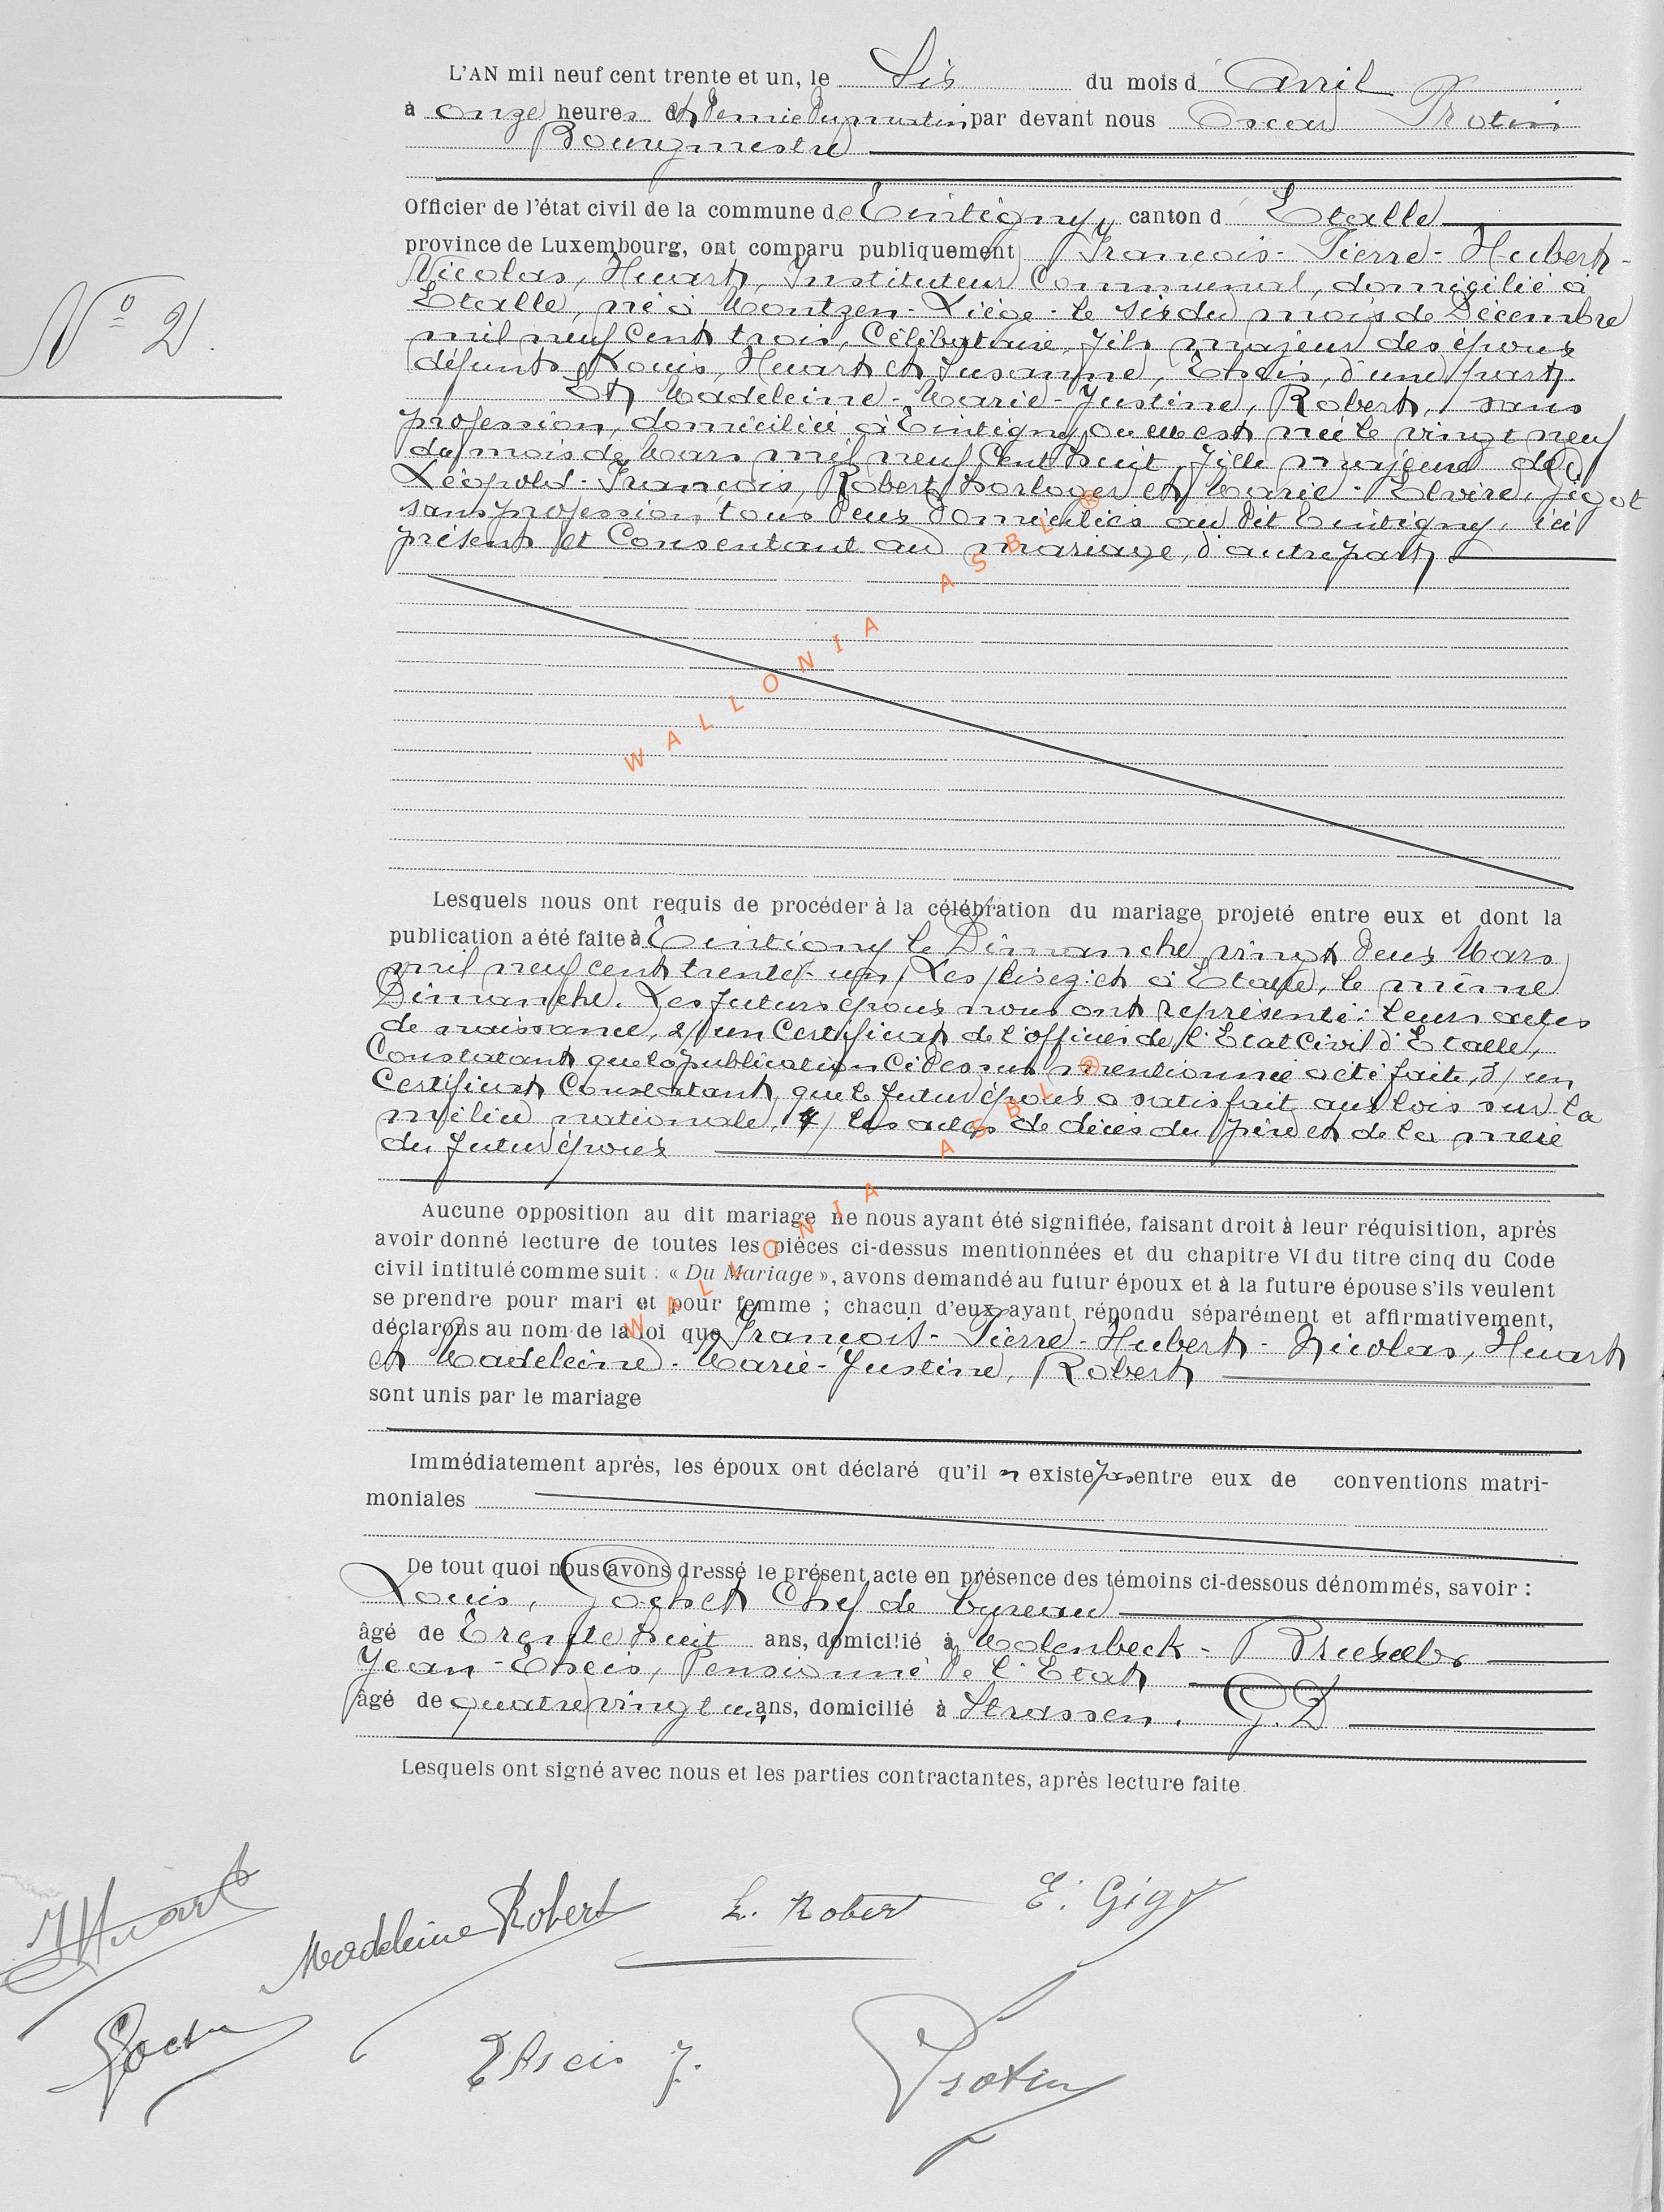 L'AN mil neuf cent trente et un, le Six du mois d'Avril
à onze heures et demie du matin par devant nous Oscar Protin
Bourgmestre
Officier de l'état civil de la commune de Tintigny, canton d'Etalle
province de Luxembourg, ont comparu publiquement François-Pierre-Hubert-
Nicolas, Huart, Instituteur Communal, domicilié à
Etalle, né à Montzen-Liége-le six du mois de Décembre
mil neuf cent trois, Célibataire, fils majeur des époux
N° 2.
défunts Louis, Huart et Susanne, Thseis, d'une part.
Et Madeleine-Marie-Justine, Robert, sans
profession, domiciliée à Tintigny, ou elle est née le vingt neuf
du mois de Mars mil neuf Cent huit, fille majeure de
Léopold-François, Robert horloger et Marie-Elvire, Gigot
sans profession, tous deux domiciliés au dit Tintigny, ici
présents et Consentant au mariage, d'autre part.
WALLONIA ASBL ®
Lesquels nous ont requis de procéder à la célébration du mariage projeté entre eux et dont la
publication a été faite à Tintigny le Dimanche vingt deux Mars
mil neuf cent trente-un, Les, lisez: et à Etalle, le même
Dimanche. Les futurs époux nous ont représenté: leurs actes
de naissance, 2/ un Certificat de l'officier de l'Etat Civil d'Etalle,
Constatant que la publication ci dessus mentionnée a été faite, 3/ un
Certificat Constatant que le futur époux a satisfait aux lois sur la
milice nationale, 4/ les actes de décès du père et de la mère
du futur époux
WALLONIA ASBL ®
Aucune opposition au dit mariage ne nous ayant été signifiée, faisant droit à leur réquisition, après
avoir donné lecture de toutes les pièces ci-dessus mentionnées et du chapitre VI du titre cinq du Code
civil intitulé comme suit : « Du Mariage », avons demandé au futur époux et à la future épouse s'ils veulent
se prendre pour mari et pour femme ; chacun d'eux ayant répondu séparément et affirmativement,
déclarons au nom de la loi que François-Pierre-Hubert-Nicolas, Huart
et Madeleine-Marie-Justine, Robert
sont unis par le mariage
Immédiatement après, les époux ont déclaré qu'il n existe pas entre eux de conventions matri-
moniales
De tout quoi nous avons dressé le présent acte en présence des témoins ci-dessous dénommés, savoir :
Louis, Goehet Chef de bureau
âgé de Trente huit ans, domicilié à Molenbeck-Bruxelles
Jean-Thseis, Pensionné de l'Etat
âgé de quatre vingt un ans, domicilié à Strassen. G.D
Lesquels ont signé avec nous et les parties contractantes, après lecture faite.
Huart
Madeleine Robert
L. Robert
E. Gigot
Thseis J.
Protin